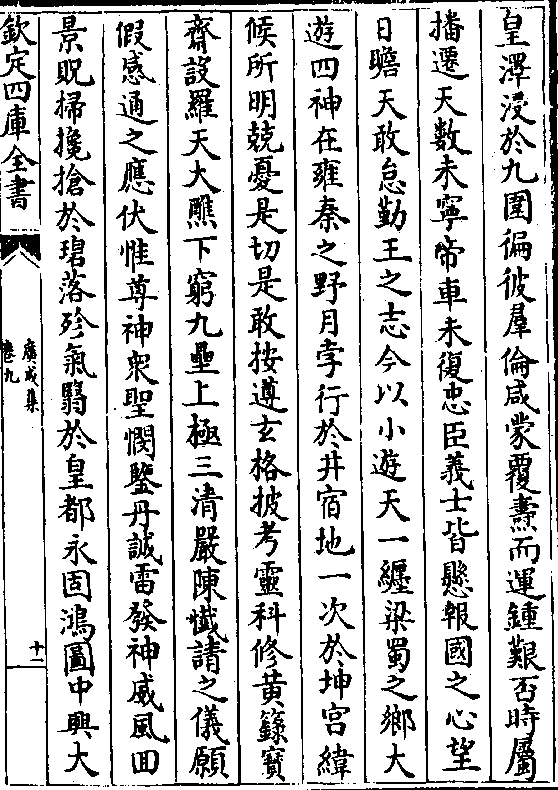 皇澤浸於九圍徧彼羣倫咸蒙覆燾而運鍾艱否時屬
播遷天數未寧帝車未復忠臣義士皆懸報國之心望
日瞻天敢怠勤王之志今以小遊天一纏梁蜀之鄉大
遊四神在雍秦之野月孛行於井宿地一次於坤宮緯
候所明兢憂是切是敢按遵玄格披考靈科修黃籙寶
齋設羅天大醮下窮九壘上極三清嚴陳懺請之儀願
假感通之應伏惟尊神衆聖憫鑒丹誠雷發神威風回
景貺掃攙搶於碧落殄氣翳於皇都永固鴻圖中興大
欽定四庫全書
廣成集
卷九
十一